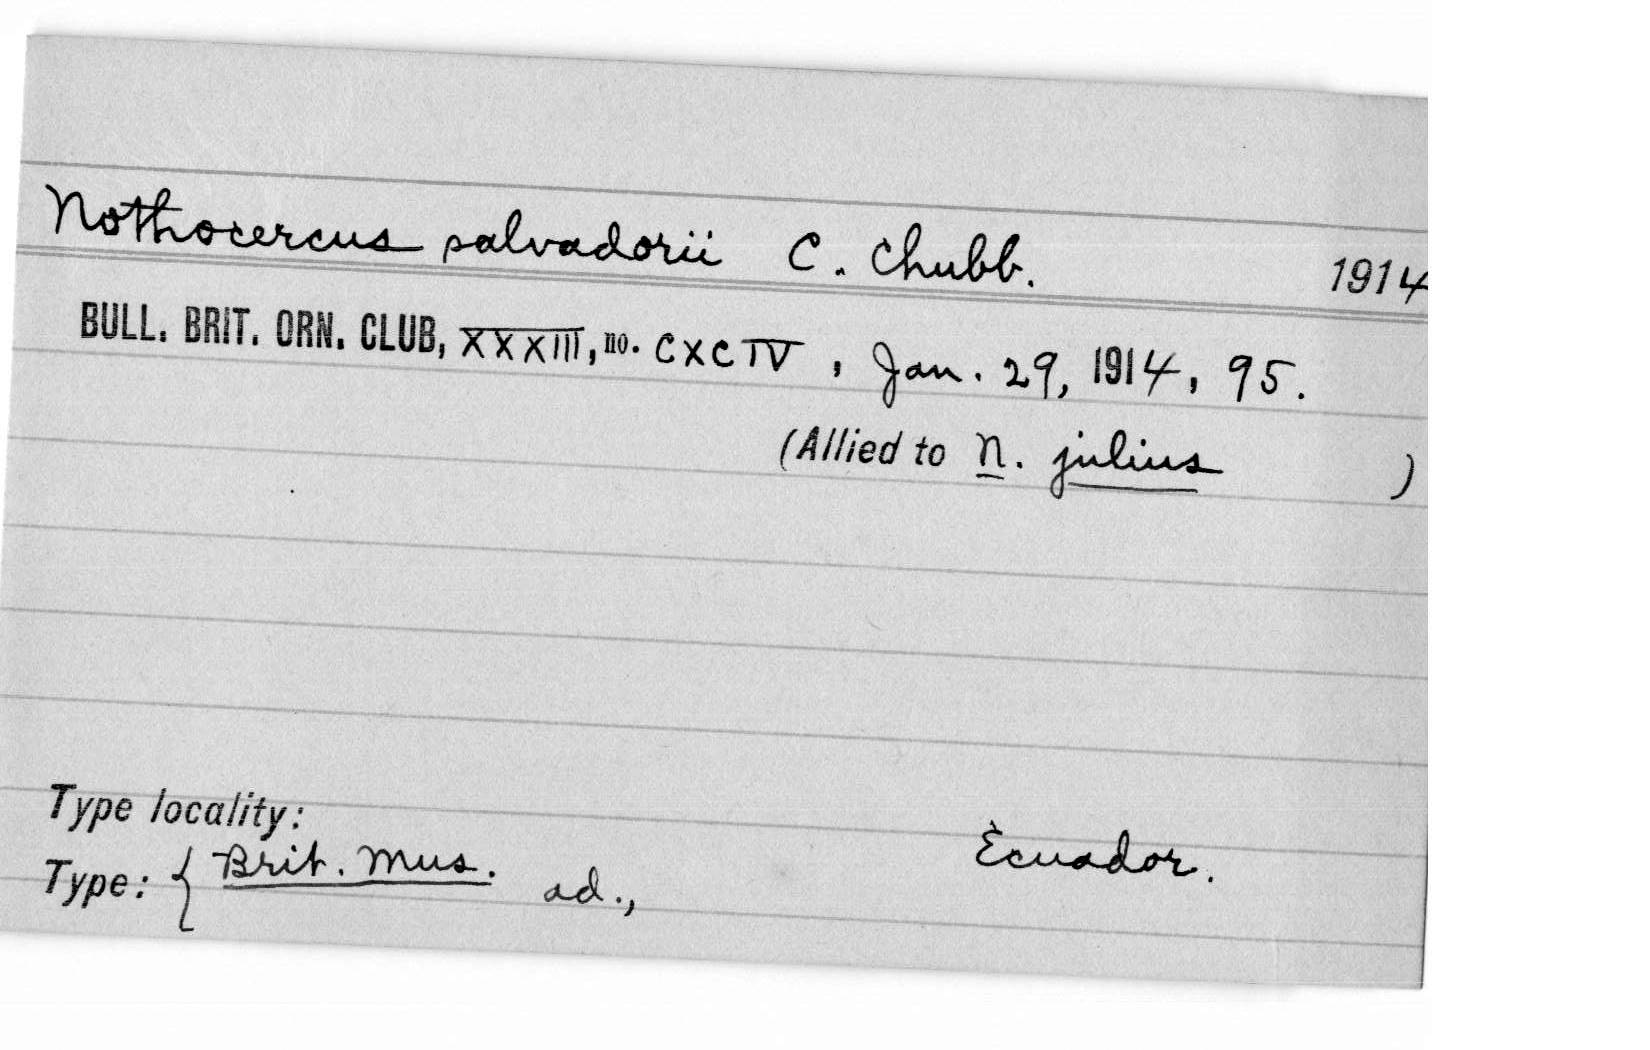 Nothocercus salvadorii C. Chubb. 1914
BULL. BRIT. ORN. CLUB, XXXIII, no. CXCIV, Jan. 29, 1914, 95.
(Allied to N. julius )
Type locality:
Ecuador.
Type: { Brit. Mus. ad.,